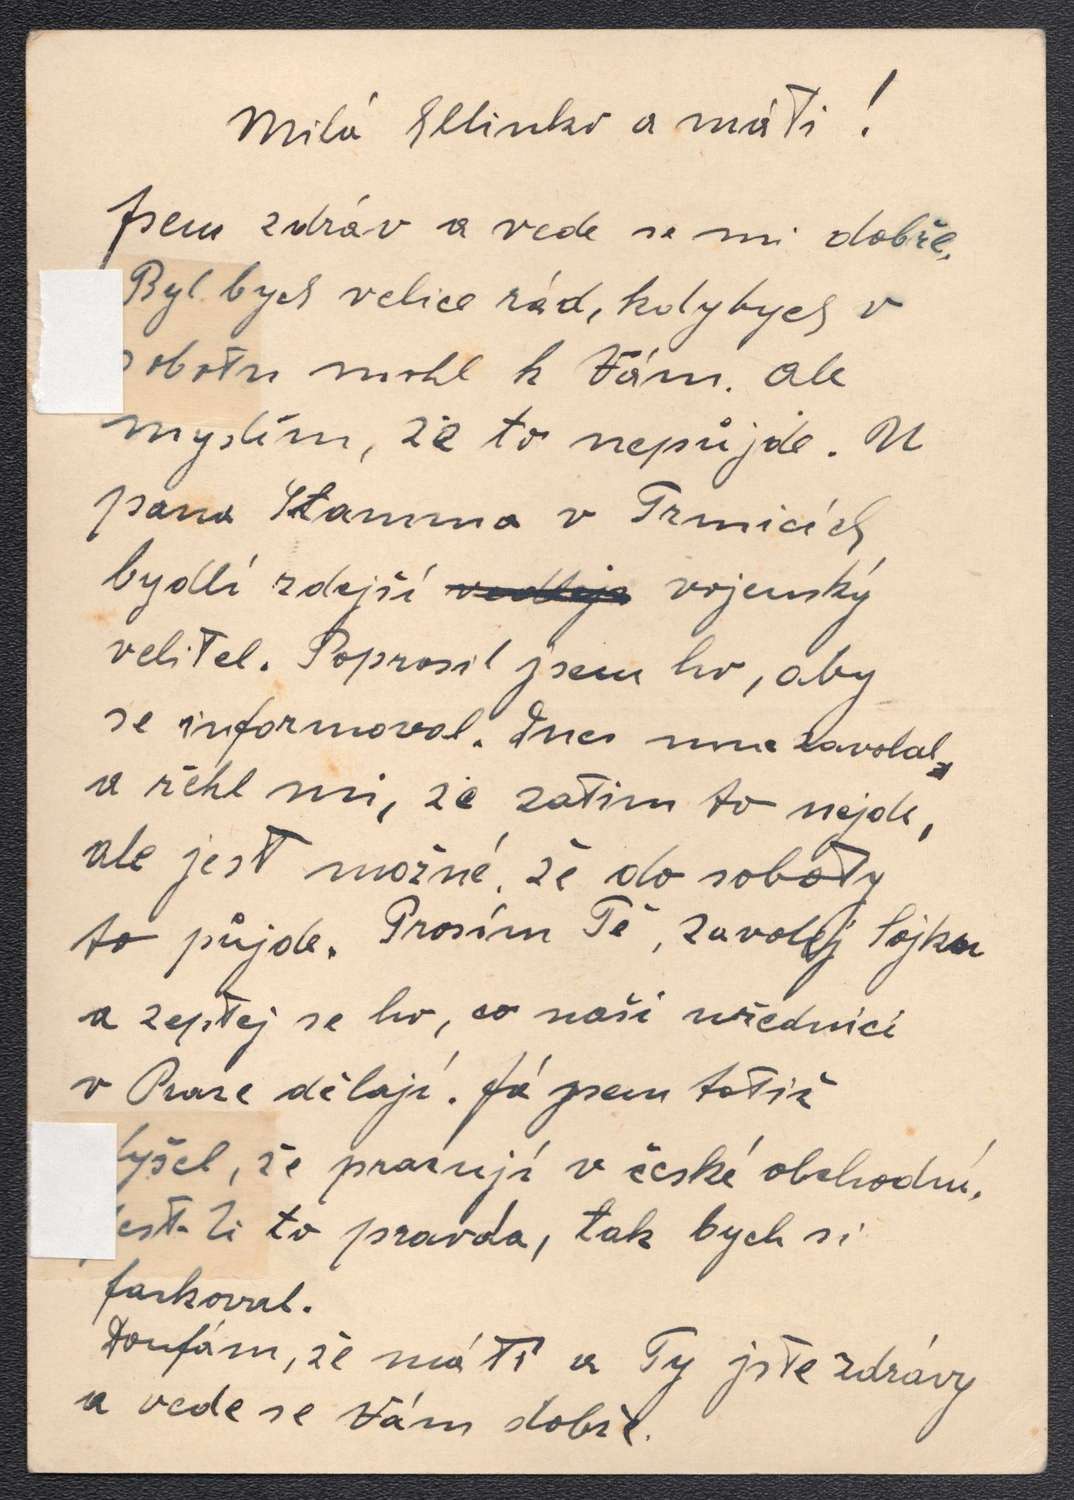 Milá Ellinko a máti!
Jsem zdráv a vede se mi dobře.
Byl bych velice rád, kdybych v
sobotu mohl k Vám. ale
myslím, že to nepůjde. U
pana Stamma v Trmicích
bydlí zdejší vojenský
velitel. Poprosil jsem ho, aby
se informoval. Dnes mne zavolal
a řekl mi, že zatim to nejde,
ale jest možné, že do soboty
to půjde. Prosím Tě, zavolej Sojku
a zeptej se ho, co naši uředníci
v Praze dělají. Já jsem totiž
lyšel, že pracují v české obchodní.
jest-li to pravda, tak bych si
Doufám, že máti a Ty jste zdrávy
a vede se Vám dobře.